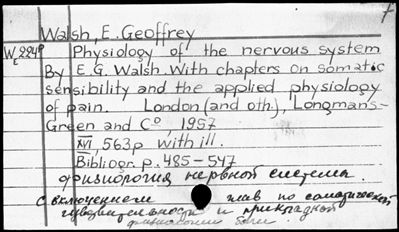 Walsh, E. Geoffrey
WE2249 Physiology of the nervous system
By E.G. Walsh. With chapters on somatic
sensibility and the applied physiology
of pain. London (and oth.), Longman's-
Green and Co, 1957
XVI, 563p with ill.
Bibliogr. p. 485-547
физиология нервной системы.
с включением глав по соматической
чувствительности и прикладной
физиологии боли.